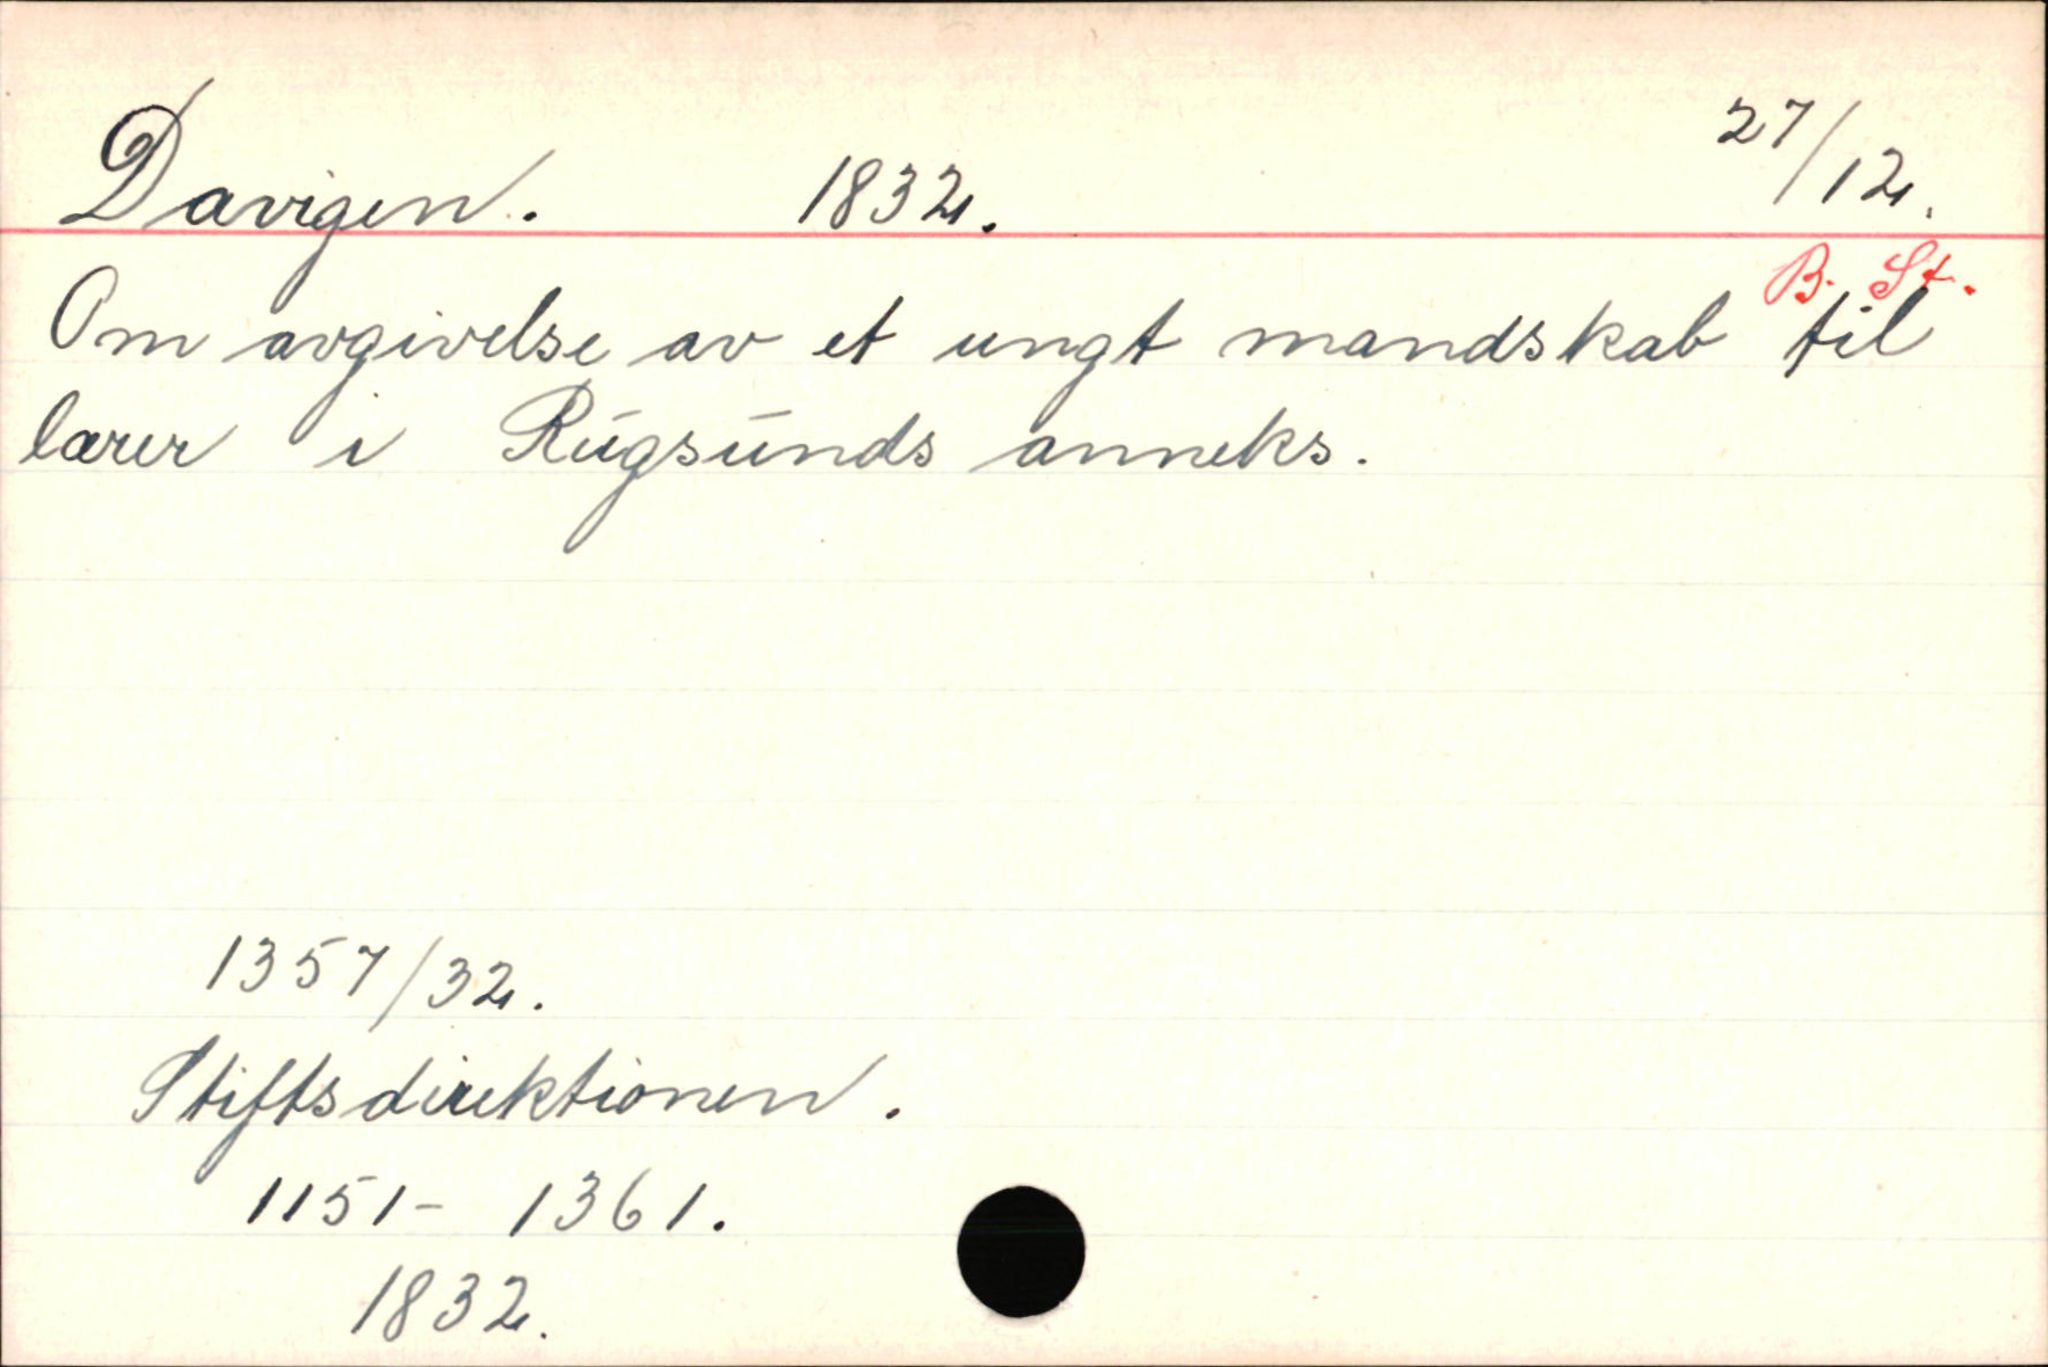 Davigen. 1832. 27/12.
B. St.
Om avgivelse av et ungt mandskab til
lærer i Rugsunds anneks.
1357/32.
Stiftsdirektionen.
1151- 1361.
1832.